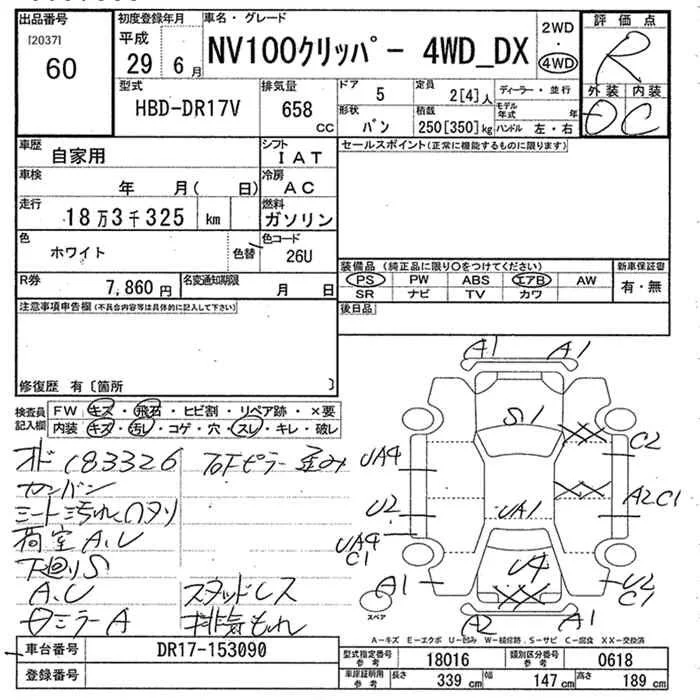 出品番号
[2037]
60
初度登録年月
平成
29 6月
車名・グレード
NV100クリッパー 4WD_DX
2WD
・
4WD
評価点
R
外装 内装
D C
型式
HBD-DR17V
排気量
658
CC
ドア
5
定員
2[4]人
ディーラー・並行
形状
バン
積載
250[350]kg
モデル年式 年
ハンドル 左・右
車歴
自家用
シフト
IAT
車検
年 月( 日)
冷房
AC
走行
18万3千325 km
燃料
ガソリン
色
ホワイト
色替
色コード
26U
R券
7,860円
名変通知期限
月 日
セールスポイント(正常に機能するものに限ります)
装備品(純正品に限り○をつけてください)
PS PW ABS エアB AW
SR ナビ TV カワ
新車保証書
有・無
後日品
注意事項申告欄(不具合内容等は具体的に記入して下さい)
修復歴 有〔箇所 〕
検査員記入欄
FW キズ・飛石・ヒビ割・リペア跡・×要
内装 キズ・汚れ・コゲ・穴・スレ・キレ・破れ
オド183326
カンバン
シート汚れ
荷室A.U
下廻りS
A.U
ミラーA
ピラー歪み
スタッドレス
排気もれ
A1 A1
S1
XX C2
UA4
XX A2C1
U2
UA1
UA4
C1
A1
U4
XX
U2
C1
A2 A1
スペア
A-キズ E-エクボ U-凹み W-補修跡 S-サビ C-腐食 XX-交換済
車台番号
DR17-153090
登録番号
型式指定番号
参考
18016
類別区分番号
参考
0618
車庫証明用
参考
長さ
339 cm
幅
147 cm
高さ
189 cm